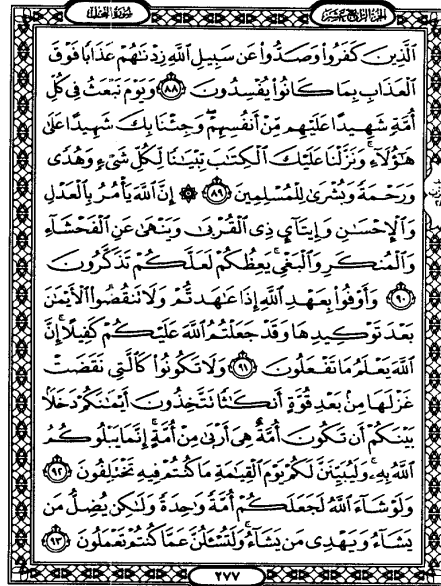 الجزء الرابع عشر
سورة النحل
ٱلَّذِينَ كَفَرُوا۟ وَصَدُّوا۟ عَن سَبِيلِ ٱللَّهِ زِدْنَـٰهُمْ عَذَابًا فَوْقَ
ٱلْعَذَابِ بِمَا كَانُوا۟ يُفْسِدُونَ ﴿٨٨﴾ وَيَوْمَ نَبْعَثُ فِى كُلِّ
أُمَّةٍ شَهِيدًا عَلَيْهِم مِّنْ أَنفُسِهِمْ ۖ وَجِئْنَا بِكَ شَهِيدًا عَلَىٰ
هَـٰٓؤُلَآءِ ۚ وَنَزَّلْنَا عَلَيْكَ ٱلْكِتَـٰبَ تِبْيَـٰنًا لِّكُلِّ شَىْءٍ وَهُدًى
وَرَحْمَةً وَبُشْرَىٰ لِلْمُسْلِمِينَ ﴿٨٩﴾ ۞ إِنَّ ٱللَّهَ يَأْمُرُ بِٱلْعَدْلِ
وَٱلْإِحْسَـٰنِ وَإِيتَآئِ ذِى ٱلْقُرْبَىٰ وَيَنْهَىٰ عَنِ ٱلْفَحْشَآءِ
وَٱلْمُنكَرِ وَٱلْبَغْىِ ۚ يَعِظُكُمْ لَعَلَّكُمْ تَذَكَّرُونَ
﴿٩٠﴾ وَأَوْفُوا۟ بِعَهْدِ ٱللَّهِ إِذَا عَـٰهَدتُّمْ وَلَا تَنقُضُوا۟ ٱلْأَيْمَـٰنَ
بَعْدَ تَوْكِيدِهَا وَقَدْ جَعَلْتُمُ ٱللَّهَ عَلَيْكُمْ كَفِيلًا ۚ إِنَّ
ٱللَّهَ يَعْلَمُ مَا تَفْعَلُونَ ﴿٩١﴾ وَلَا تَكُونُوا۟ كَٱلَّتِى نَقَضَتْ
غَزْلَهَا مِنۢ بَعْدِ قُوَّةٍ أَنكَـٰثًا تَتَّخِذُونَ أَيْمَـٰنَكُمْ دَخَلًۢا
بَيْنَكُمْ أَن تَكُونَ أُمَّةٌ هِىَ أَرْبَىٰ مِنْ أُمَّةٍ ۚ إِنَّمَا يَبْلُوكُمُ
ٱللَّهُ بِهِۦ ۚ وَلَيُبَيِّنَنَّ لَكُمْ يَوْمَ ٱلْقِيَـٰمَةِ مَا كُنتُمْ فِيهِ تَخْتَلِفُونَ ﴿٩٢﴾
وَلَوْ شَآءَ ٱللَّهُ لَجَعَلَكُمْ أُمَّةً وَٰحِدَةً وَلَـٰكِن يُضِلُّ مَن
يَشَآءُ وَيَهْدِى مَن يَشَآءُ ۚ وَلَتُسْـَٔلُنَّ عَمَّا كُنتُمْ تَعْمَلُونَ ﴿٩٣﴾
٢٧٧